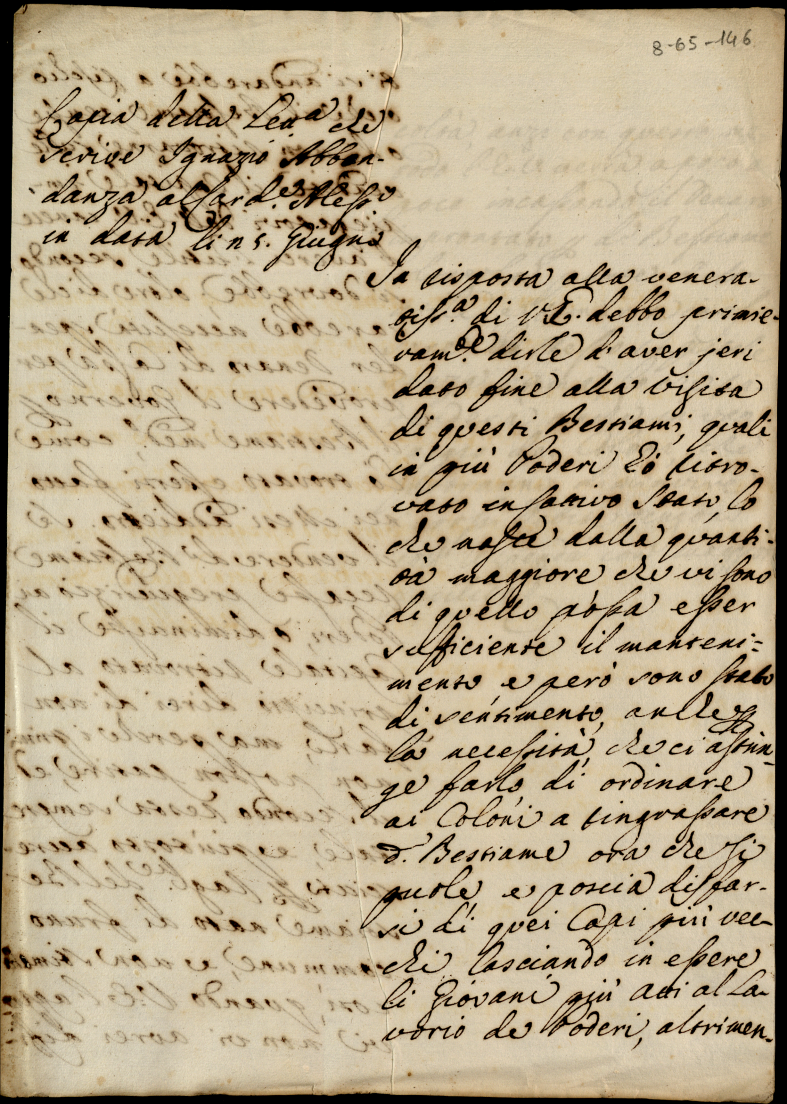 8-65-146
Copia della Letta che
scrive Ignazio Abbon-
danza al Sard.e Aless.o
in data li 15. Giugno
In risposta alla venera-
tiss.a di V.E. debbo primie-
ram.te dirle d'aver jeri
dato fine alla visita
di questi Bestiami, quali
in più Poderi hò ritro-
vato in cattivo stato, lo
che nasce dalla quanti-
tà maggiore che vi sono
di quello possa esser
sufficiente il manteni-
mento, e però sono stato
di sentimento, anche p
la necessità, che ci astrin-
ge farlo, di ordinare
ai Coloni a ringrassare
d.o Bestiame ora che si
puole e poscia disfar-
si di quei Capi più vec-
chi lasciando in essere
li Giovani più atti al La-
vorio de Poderi, altrimen-